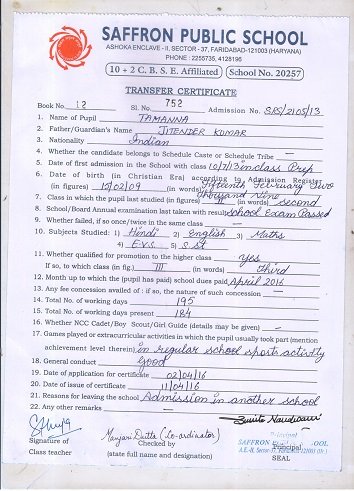 SAFFRON PUBLIC SCHOOL
ASHOKA ENCLAVE - II, SECTOR - 37, FARIDABAD-121003 (HARYANA)
PHONE : 2255735, 4128196
10 + 2 C. B. S. E. Affiliated School No. 20257
TRANSFER CERTIFICATE
Book No. 12 Sl. No. 752 Admission No. SPS/2105/13
1. Name of Pupil TAMANNA
2. Father/Guardian's Name JITENDER KUMAR
3. Nationality Indian
4. Whether the candidate belongs to Schedule Caste or Schedule Tribe —
5. Date of first admission in the School with class 10/7/13 in class Prep
6. Date of birth (in Christian Era) according to Admission Register
(in figures) 15/02/09 (in words) Fifteenth February Two
thousand Nine
7. Class in which the pupil last studied (in figures) (in words) second
8. School/Board Annual examination last taken with result school Exam Passed
9. Whether failed, if so once/twice in the same class —
10. Subjects Studied : 1) Hindi 2) English 3) Maths
4) E.V.S. 5) S.St
11. Whether qualified for promotion to the higher class yes
If so, to which class (in fig.) III (in words) third
12. Month up to which the (pupil has paid) school dues paid April 2016
13. Any fee concession availed of : if so, the nature of such concession —
14. Total No. of working days 195
15. Total No. of working days present 184
16. Whether NCC Cadet/Boy Scout/Girl Guide (details may be given) —
17. Games played or extracurricular activities in which the pupil usually took part (mention
achievement level therein) in regular school sports activity
18. General conduct Good
19. Date of application for certificate 02/04/16
20. Date of issue of certificate 11/04/16
21. Reasons for leaving the school Admission in another school
22. Any other remarks —
Manjari Dutta (Co-ordinator)
Signature of Checked by Principal
Class teacher (state full name and designation) SEAL